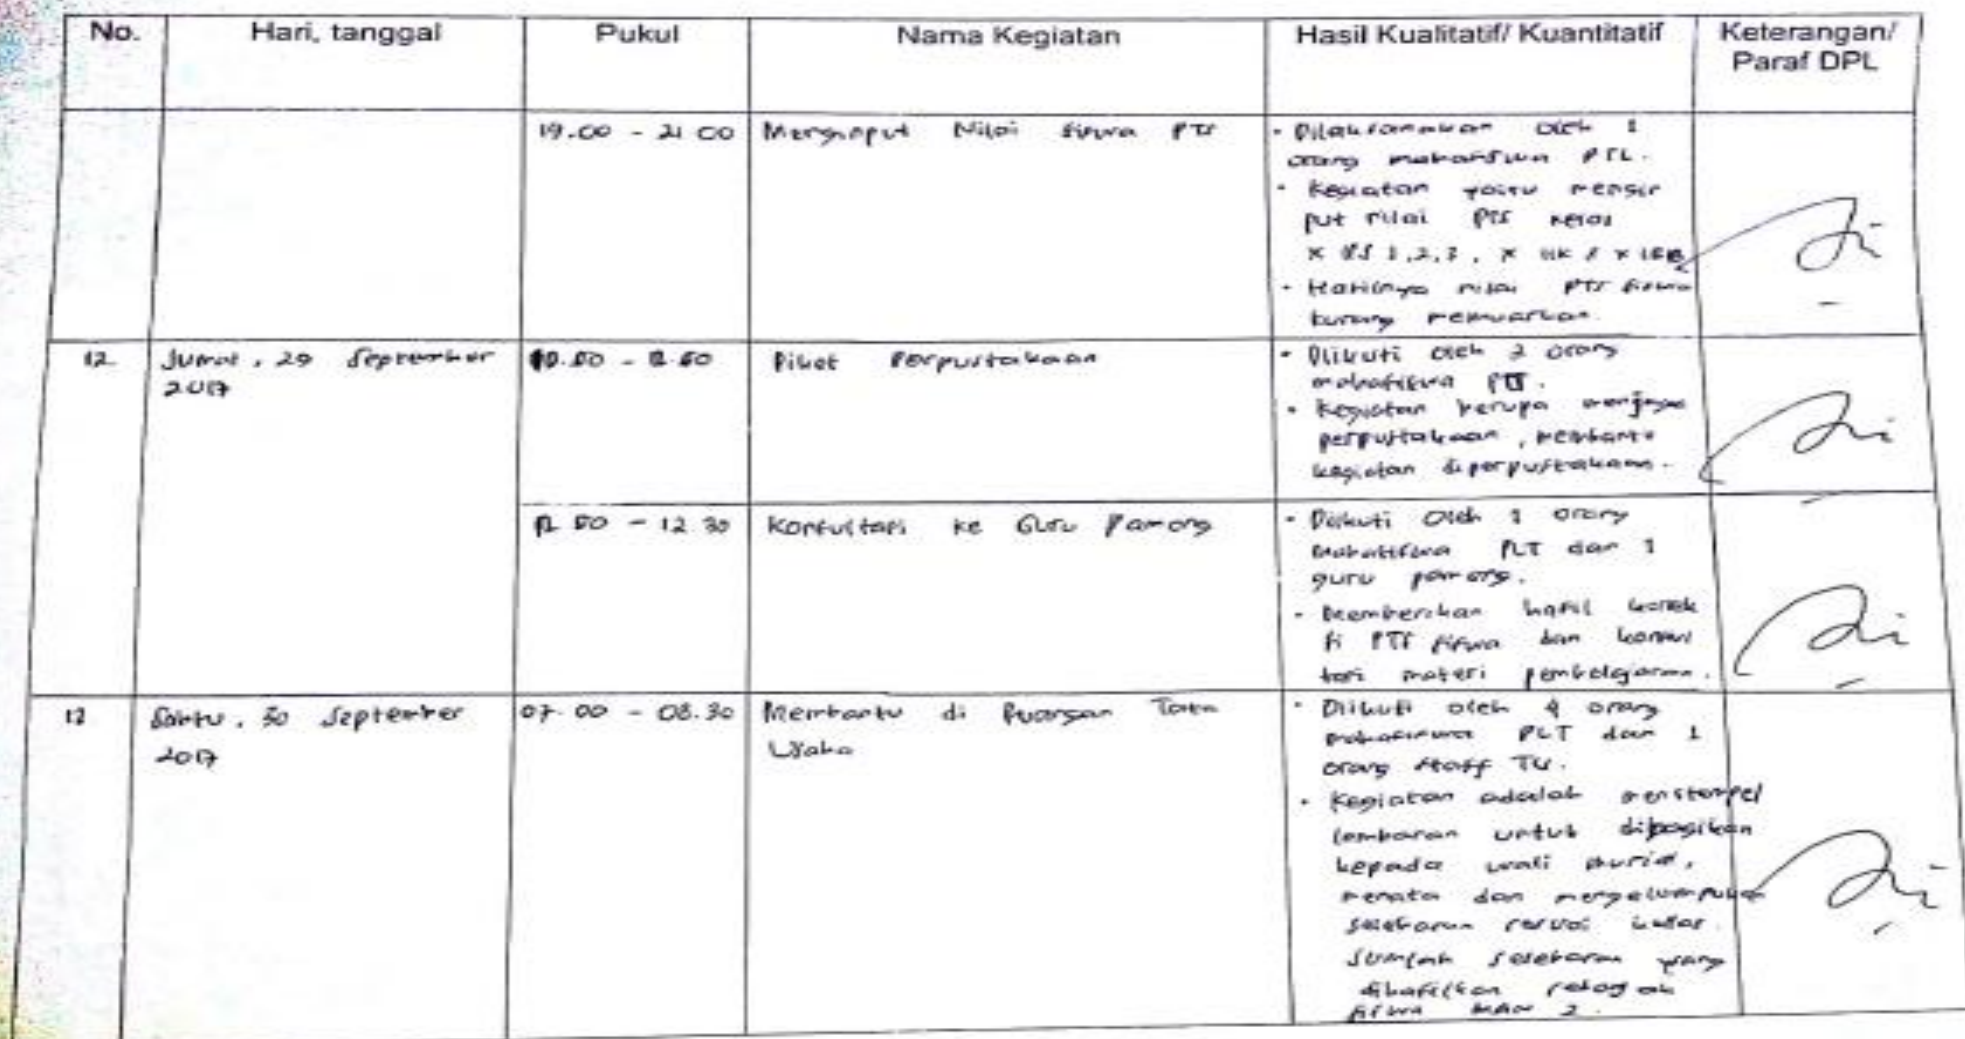 No. Hari, tanggal Pukul Nama Kegiatan Hasil Kualitatif/ Kuantitatif Keterangan/
Paraf DPL
19.00 - 21 00 Menginput Nilai siswa PTS
- Dilaksanakan oleh 1
orang mahasiswa
- Kegiatan yaitu mengin
put nilai PTS kelas
X 1,2,3, X
- Hasilnya nilai PTS siswa
kurang memuaskan.
12. Jumat, 29 September
2017
Piket Perpustakaan
- Diikuti oleh 2 orang
mahasiswa
- Kegiatan berupa menjaga
perpustakaan, membantu
kegiatan diperpustakaan.
- 12 30 Konsultasi ke Guru Pamong
- Diikuti Oleh 1 orang
mahasiswa PLT dan 1
guru pamong.
- hasil korek
si PTS siswa dan konsul
tasi materi pembelajaran.
13 Sabtu, 30 September
2017
07.00 - 08.30 Membantu di Ruangan Tata
Usaha
- Diikuti oleh 4 orang
mahasiswa PLT dan 1
orang staff TU.
- Kegiatan adalah menstempel
lembaran untuk dibagikan
kepada wali murid,
menata dan mengelompokan
selebaran sesuai kelas.
Jumlah selebaran yang
dihasilkan
siswa MAN 2.